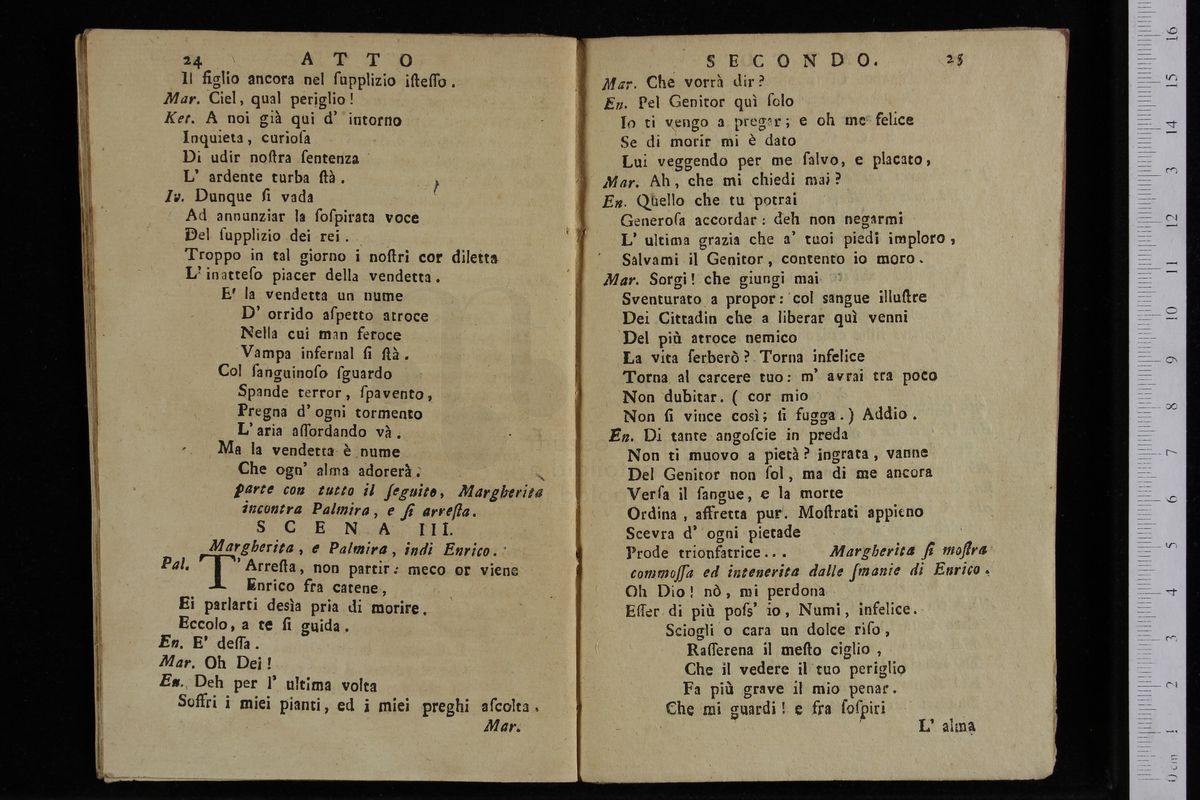 24 ATTO
Il figlio ancora nel ſupplizio iſteſſo.
Mar. Ciel, qual periglio!
Ket. A noi già qui d' intorno
Inquieta, curioſa
Di udir noſtra ſentenza
L' ardente turba ſtà.
Iv. Dunque ſi vada
Ad annunziar la ſoſpirata voce
Del ſupplizio dei rei.
Troppo in tal giorno i noſtri cor diletta
L' inatteſo piacer della vendetta.
E' la vendetta un nume
D' orrido aſpetto atroce
Nella cui man feroce
Vampa infernal ſi ſtà.
Col ſanguinoſo ſguardo
Spande terror, ſpavento,
Pregna d' ogni tormento
L' aria aſſordando và.
Ma la vendetta è nume
Che ogn' alma adorerà.
parte con tutto il ſeguito, Margherita
incontra Palmira, e ſi arreſta.
SCENA III.
Margherita, e Palmira, indi Enrico.
Pal. T' Arreſta, non partir: meco or viene
Enrico fra catene,
Ei parlarti desìa pria di morire.
Eccolo, a te ſi guida.
En. E' deſſa.
Mar. Oh Dei!
En. Deh per l' ultima volta
Soffri i miei pianti, ed i miei preghi aſcolta.
Mar.
SECONDO. 25
Mar. Che vorrà dir?
En. Pel Genitor quì ſolo
Io ti vengo a pregar; e oh me felice
Se di morir mi è dato
Lui veggendo per me ſalvo, e placato,
Mar. Ah, che mi chiedi mai?
En. Quello che tu potrai
Generoſa accordar: deh non negarmi
L' ultima grazia che a' tuoi piedi imploro,
Salvami il Genitor, contento io moro.
Mar. Sorgi! che giungi mai
Sventurato a propor: col sangue illuſtre
Dei Cittadin che a liberar quì venni
Del più atroce nemico
La vita ſerberò? Torna infelice
Torna al carcere tuo: m' avrai tra poco
Non dubitar. ( cor mio
Non ſi vince così; ſi fugga.) Addio.
En. Di tante angoſcie in preda
Non ti muovo a pietà? ingrata, vanne
Del Genitor non ſol, ma di me ancora
Verſa il ſangue, e la morte
Ordina, affretta pur. Moſtrati appieno
Scevra d' ogni pietade
Prode trionfatrice... Margherita ſi moſtra
commoſſa ed intenerita dalle ſmanie di Enrico.
Oh Dio! nò, mi perdona
Eſſer di più poſs' io, Numi, infelice.
Sciogli o cara un dolce riſo,
Raſſerena il meſto ciglio,
Che il vedere il tuo periglio
Fa più grave il mio penar.
Che mi guardi! e fra ſoſpiri
L' alma